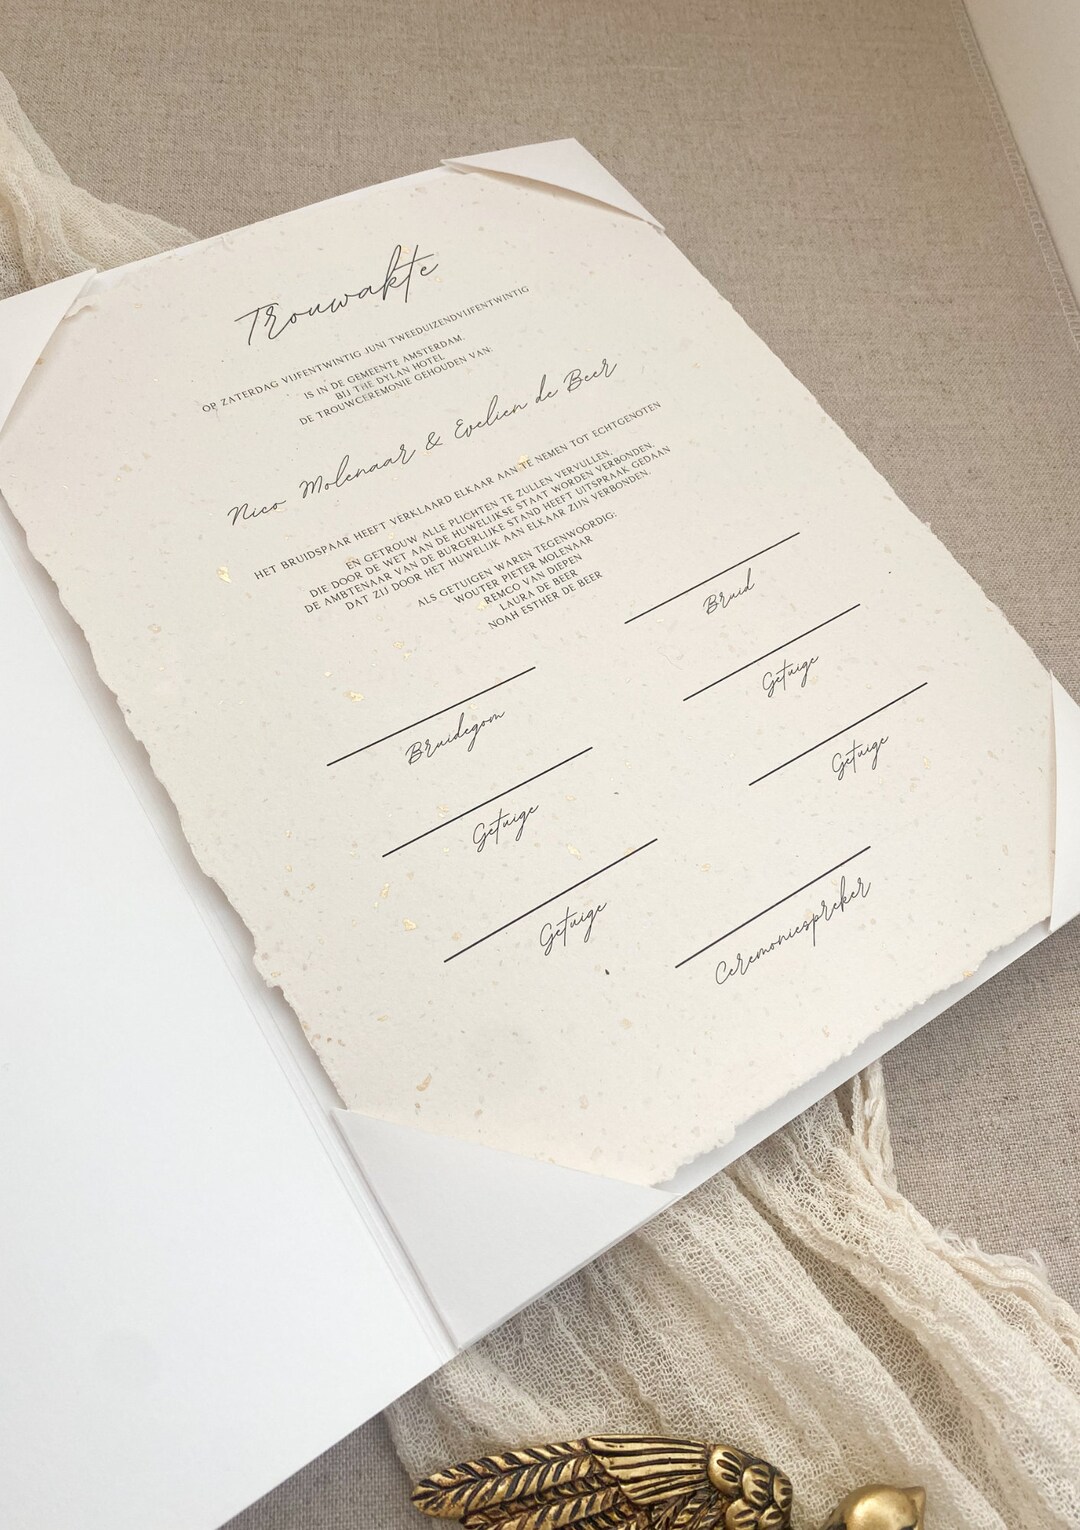 Trouwakte
OP ZATERDAG VIJFENTWINTIG JUNI TWEEDUIZENDVIJFENTWINTIG
IS IN DE GEMEENTE AMSTERDAM,
BIJ THE DYLAN HOTEL
DE TROUWCEREMONIE GEHOUDEN VAN:
Nico Molenaar & Evelien de Beer
HET BRUIDSPAAR HEEFT VERKLAARD ELKAAR AAN TE NEMEN TOT ECHTGENOTEN
EN GETROUW ALLE PLICHTEN TE ZULLEN VERVULLEN,
DIE DOOR DE WET AAN DE HUWELIJKSE STAAT WORDEN VERBONDEN.
DE AMBTENAAR VAN DE BURGERLIJKE STAND HEEFT UITSPRAAK GEDAAN
DAT ZIJ DOOR HET HUWELIJK AAN ELKAAR ZIJN VERBONDEN.
ALS GETUIGEN WAREN TEGENWOORDIG:
WOUTER PIETER MOLENAAR
REMCO VAN DIEPEN
LAURA DE BEER
NOAH ESTHER DE BEER
Bruidegom
Bruid
Getuige
Getuige
Getuige
Getuige
Ceremoniespreker